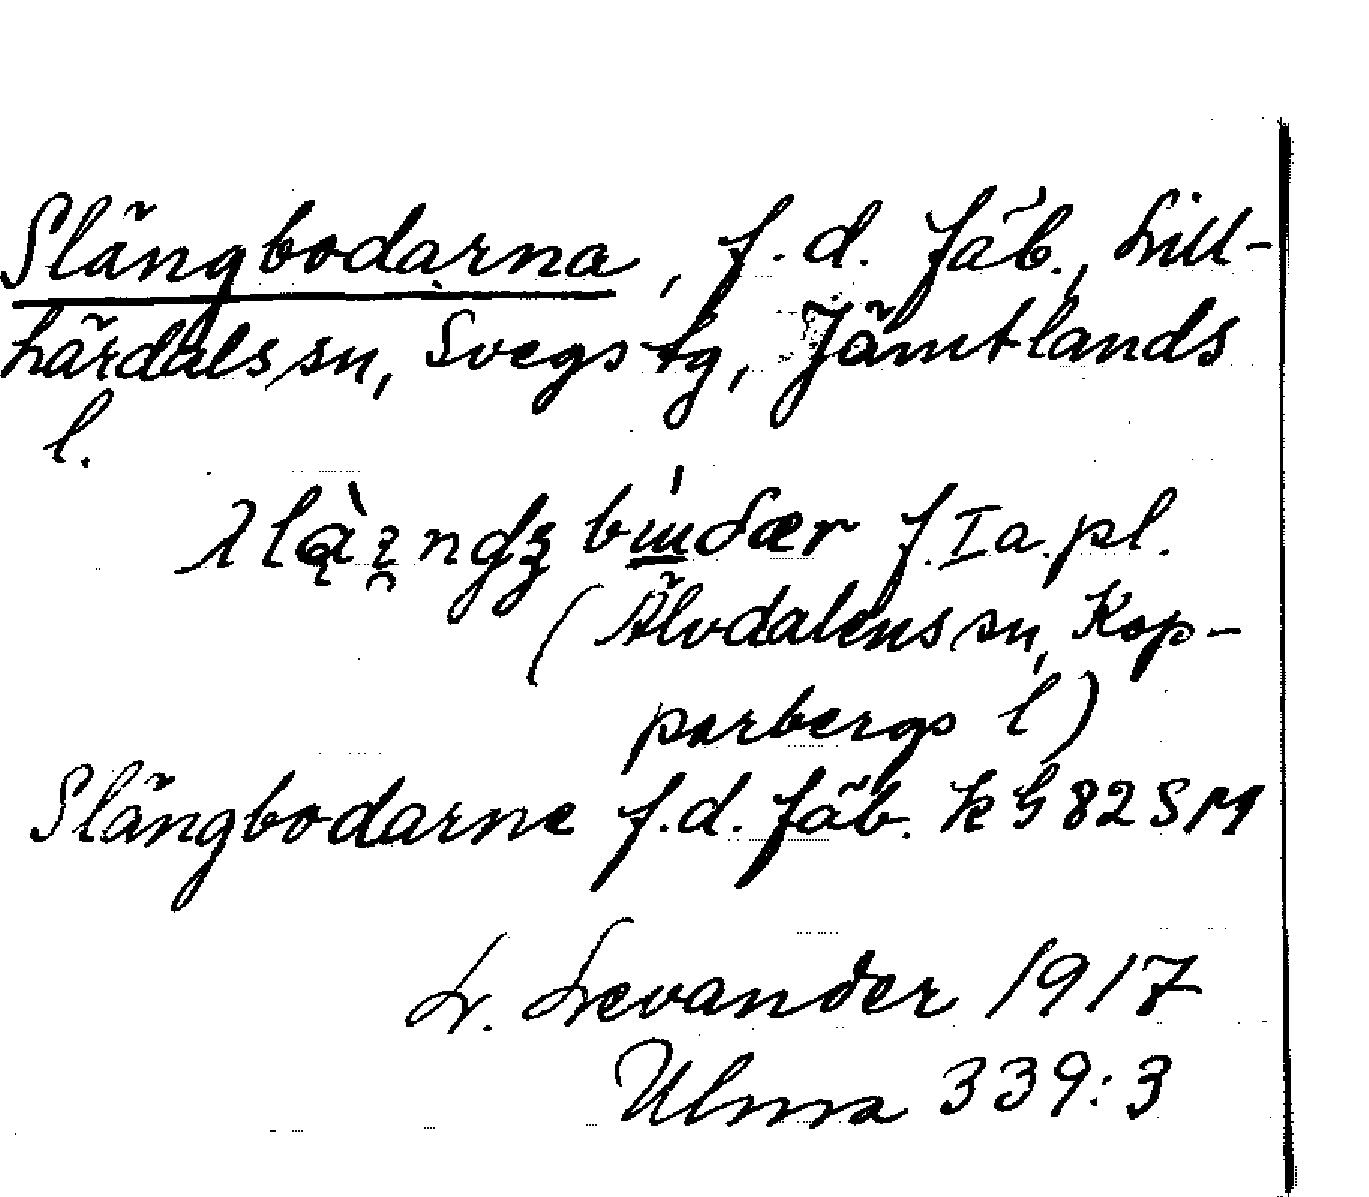 Slängbodarna, f.d. fäb., Lill-
härdals sn, Svegs tg, Jämtlands
l.
f. Ia. pl.
(Älvdalens sn, Kop-
parbergs l)
Slängbodarne f.d. fäb. kG 82 SM
L. Levander 1917
Ulma 339:3